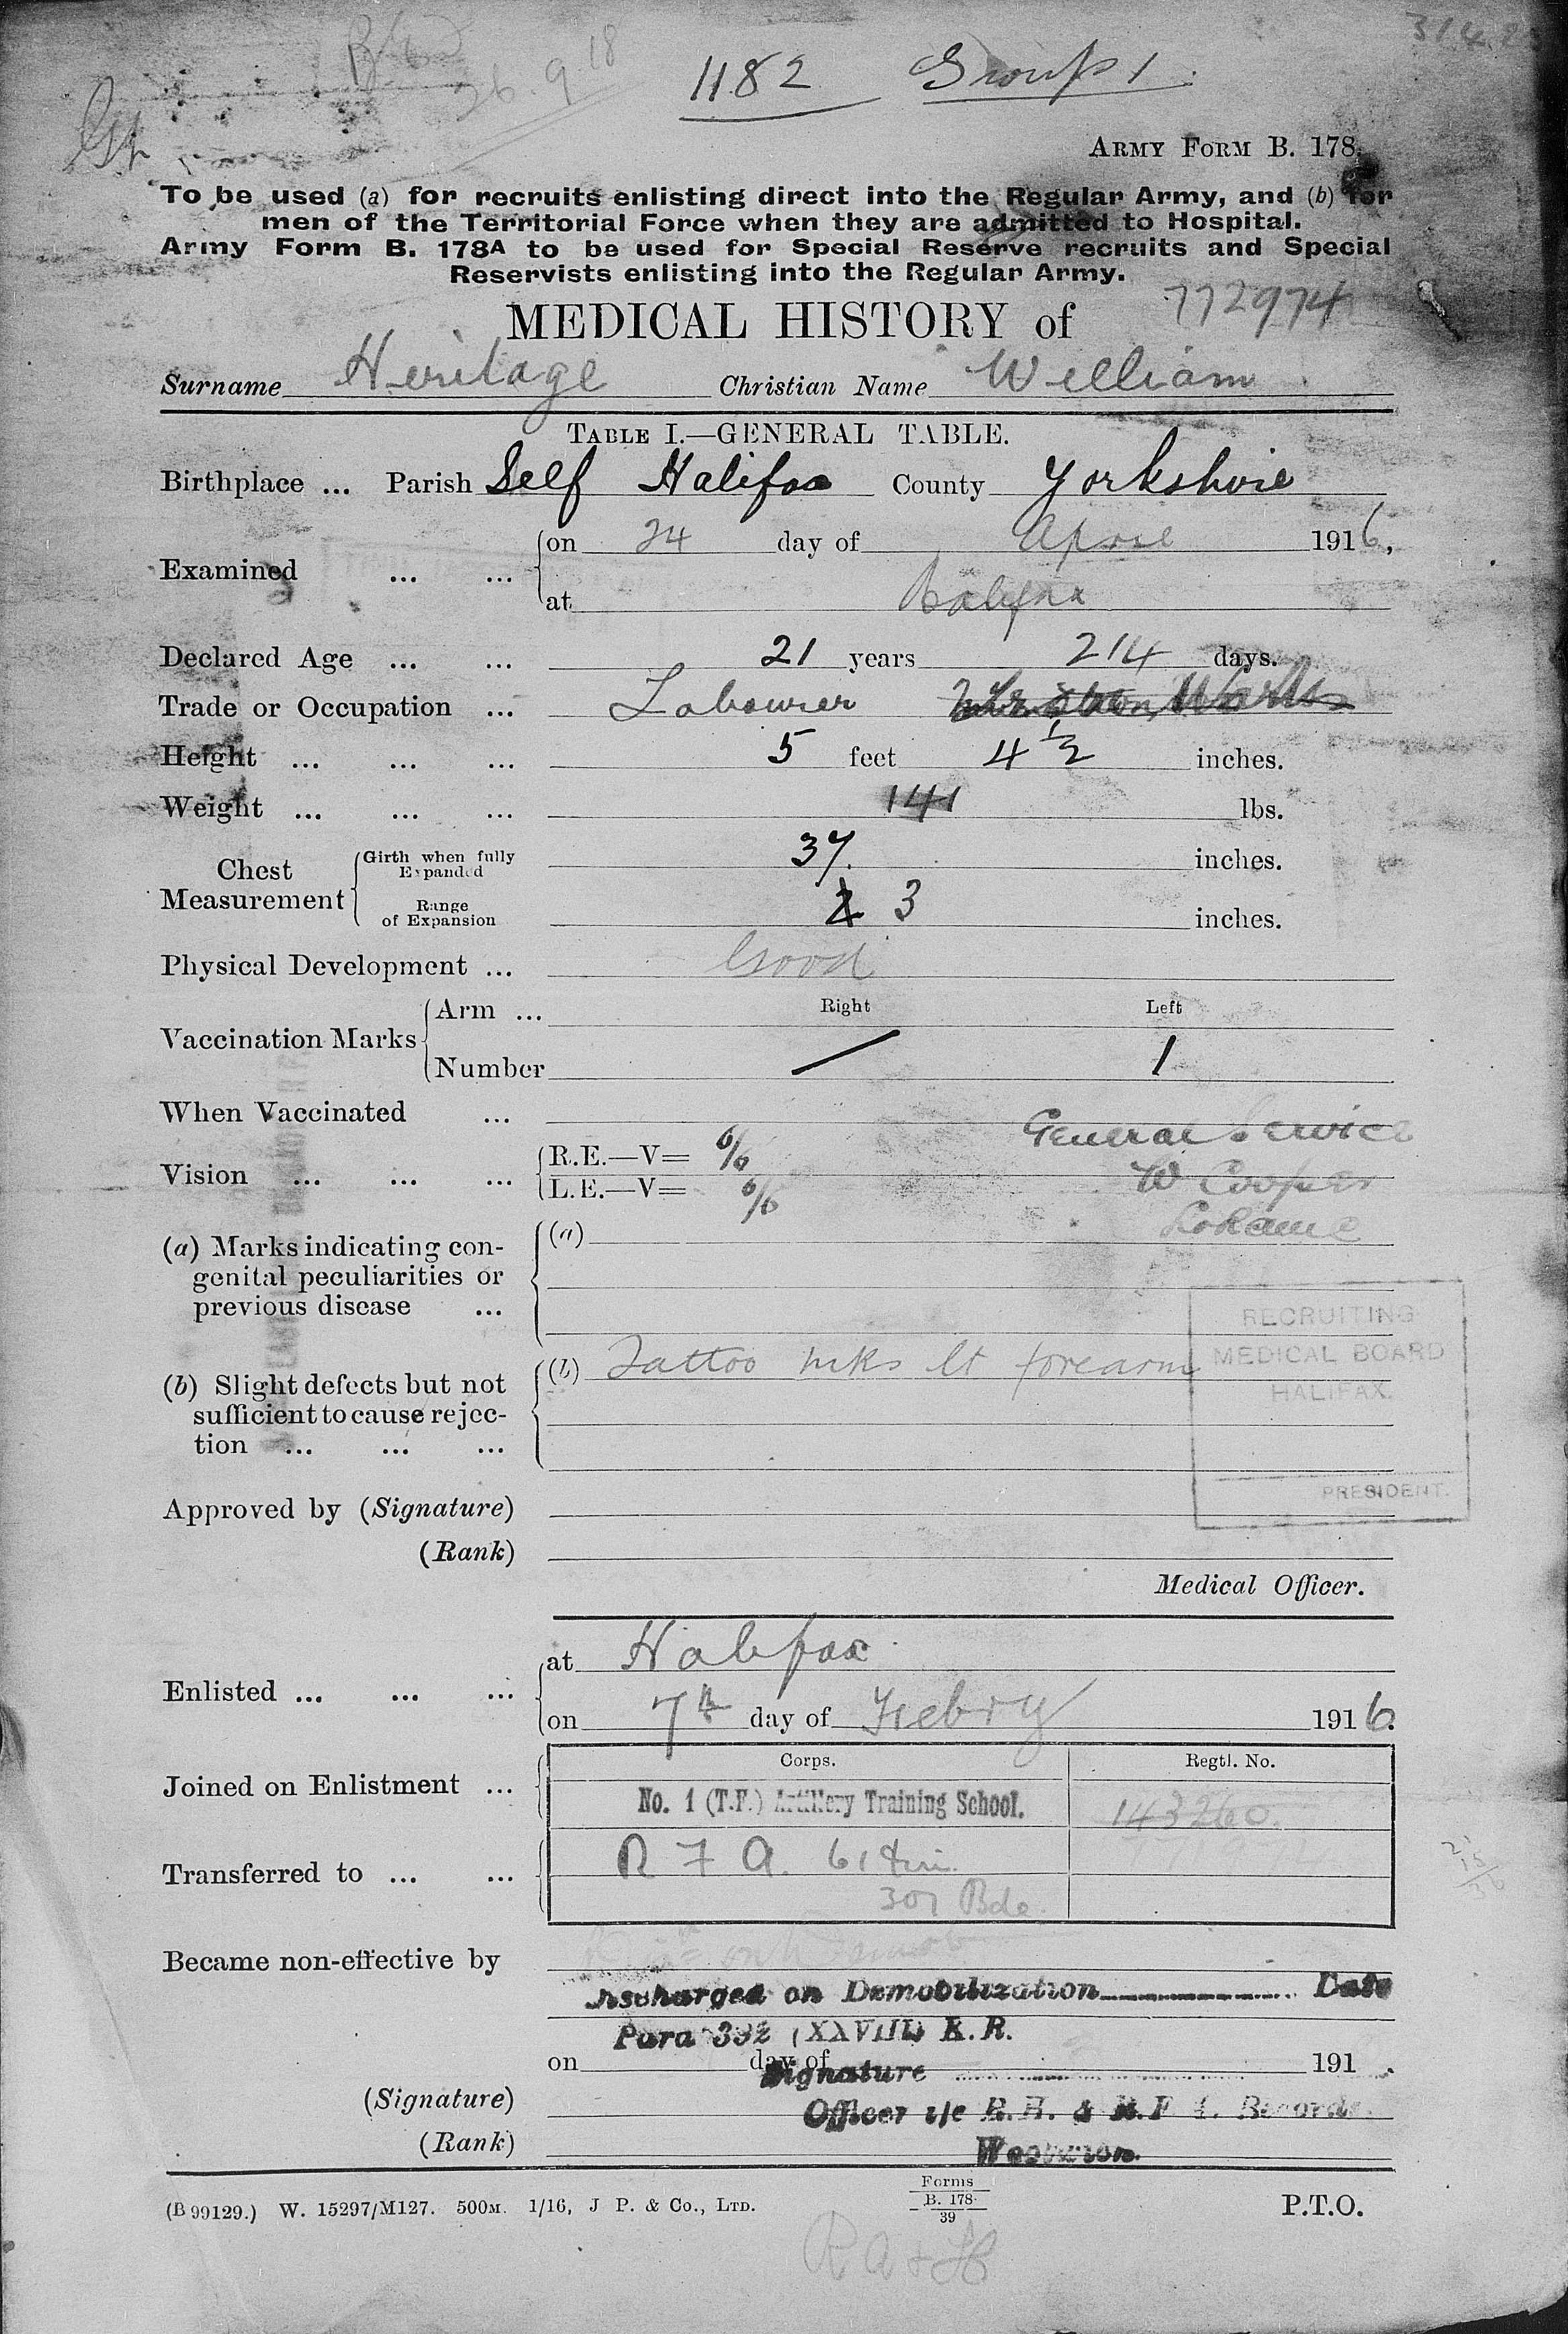 1182 Group 1.
26.9.18
ARMY FORM B. 178.
To be used (a) for recruits enlisting direct into the Regular Army, and (b) for
men of the Territorial Force when they are admitted to Hospital.
Army Form B. 178A to be used for Special Reserve recruits and Special
Reservists enlisting into the Regular Army.
772974
MEDICAL HISTORY of
Surname Heritage Christian Name William
TABLE I.—GENERAL TABLE.
Birthplace ... Parish Self Halifax County Yorkshire
Examined ... ... on 24 day of April 1916,
at Halifax
Declared Age ... ... 21 years 214 days.
Trade or Occupation ... Labourer
Height ... ... ... 5 feet 4 1/2 inches.
Weight ... ... ... 141 lbs.
Chest Measurement Girth when fully Expanded 37. inches.
Range of Expansion 3 inches.
Physical Development ... Good
Vaccination Marks Arm ... Right Left
Number / 1
When Vaccinated ...
General Service
Vision ... ... ... R.E.—V= 6/6
L.E.—V= 6/6
W Cooper
(a) Marks indicating con-
genital peculiarities or
previous disease ...
(a)
(b) Slight defects but not
sufficient to cause rejec-
tion ... ... ...
(b) Tattoo mks lt forearm
RECRUITING
MEDICAL BOARD
HALIFAX.
PRESIDENT.
Approved by (Signature)
(Rank)
Medical Officer.
Enlisted ... ... ... at Halifax
on 7th day of Febry 1916.
Corps. Regtl. No.
Joined on Enlistment ... No. 1 (T.F.) Artillery Training School. 143260.
Transferred to ... ... R F A. 61 Div.
307 Bde.
Became non-effective by
Discharged on Demobilization Date
Para 392 (XXVIII) K.R.
on day of 191 .
Signature
(Signature) Officer i/c R.H. & R.F.A. Records
(Rank)
(B 99129.) W. 15297/M127. 500M. 1/16, J P. & Co., LTD.
Forms
B. 178
39
P.T.O.